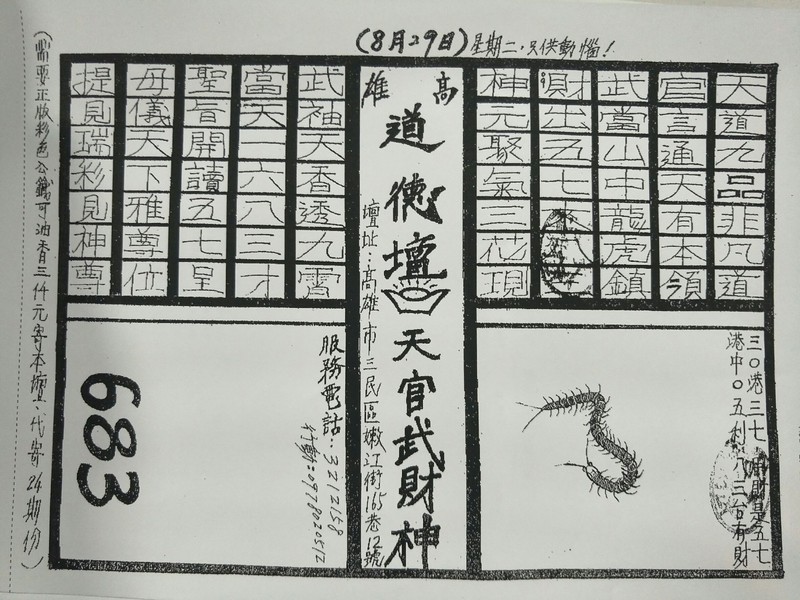 (8月29日)星期二,只供動惱!
天道九品非凡道
官言通天有本領
武當山中龍虎鎮
財出五七
神元聚氣三花現
高雄
道德壇 天官武財神
壇址:高雄市三民區嫩江街165巷12號
武袖天香透九霄
當天一六八三才
聖旨開讀五七呈
母儀天下雅尊位
提見瑞彩見神尊
三0港三七 財是五七
港中0五利 八三台有財
服務電話:3212158
行動:0978020512
683
(需要正版彩色 可油香三仟元寄本壇、代寄24期份)